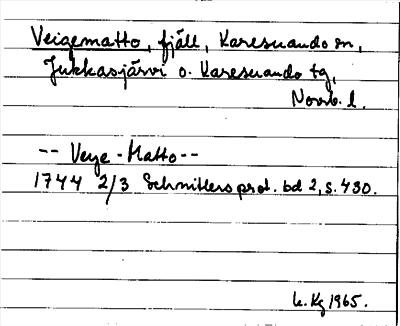 Veigematto, fjäll, Karesuando sn,
Jukkasjärvi o. Karesuando tg,
Norrb. l.
-- Veye-Matto --
1744 2/3 Schnitlers prot. bd 2, s. 430.
K. Kg 1965.